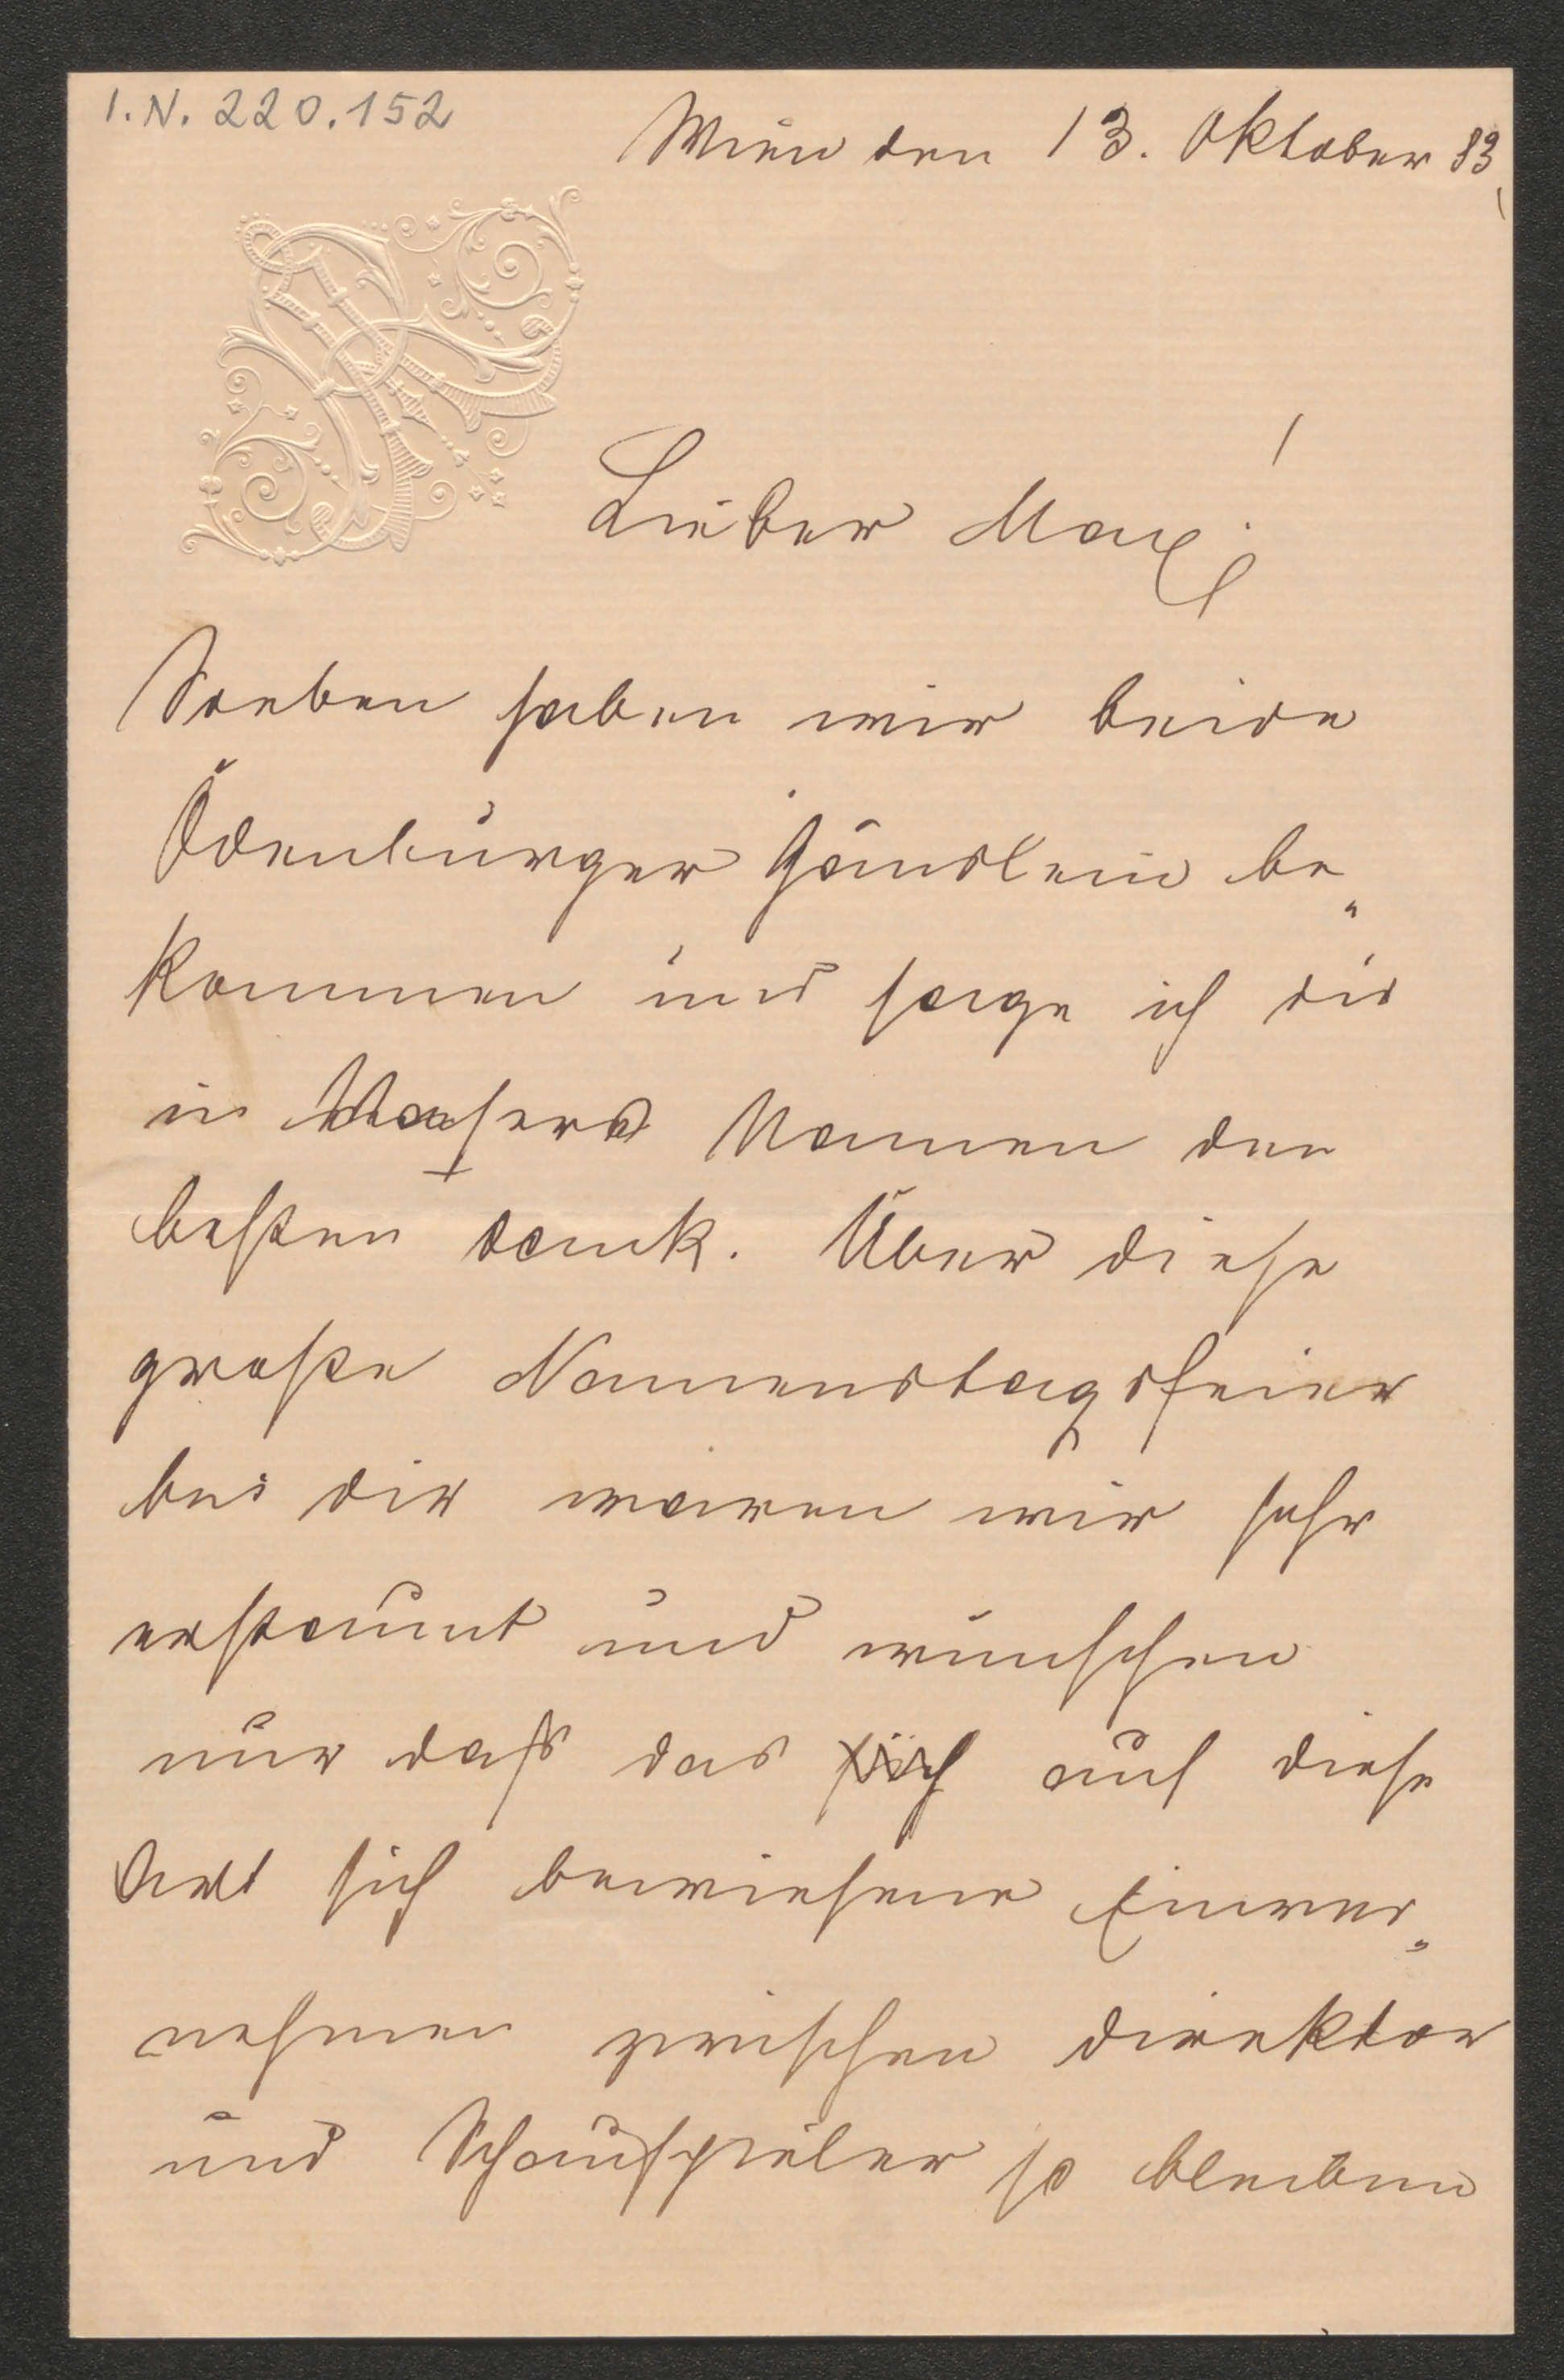 I.N. 220.152
Wien den 13. Oktober 83
Lieber Max!
Soeben haben wir beide
Ödenburger Gänslein be„
kommen und sage ich dir
in Namen den
besten dank. Über diese
große Namenstagsfeier
bei dir waren wir sehr
erstaunt und wünschen
nur daß das auf diese
Art sich beweisene Einver„
nehmen zwischen direktor
und Schauspieler so bleiben